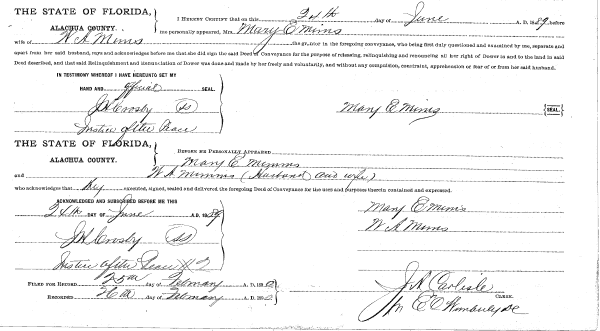 THE STATE OF FLORIDA,
ALACHUA COUNTY.
I HEREBY CERTIFY that on this 24th day of June A. D. 1889 before
me personally appeared, Mrs. Mary E Mims
wife of W. A. Mims the grantor in the foregoing conveyance, who being first duly questioned and examined by me, separate and
apart from her said husband, says and acknowledges before me that she did sign the said Deed of Conveyance for the purpose of releasing, relinquishing and renouncing all her right of Dower in and to the land in said
Deed described, and that said Relinquishment and Renunciation of Dower was done and made by her freely and voluntarily, and without any compulsion, constraint, apprehension or fear of or from her said husband.
IN TESTIMONY WHEREOF I HAVE HEREUNTO SET MY
HAND AND official SEAL.
J A Crosby
Justice of the Peace
Mary E Mims {SEAL.}
THE STATE OF FLORIDA,
ALACHUA COUNTY.
BEFORE ME PERSONALLY APPEARED
Mary E Mimms
and W. A. Mimms (Husband and wife)
who acknowledges that they executed, signed, sealed and delivered the foregoing Deed of Conveyance for the uses and purposes therein contained and expressed.
ACKNOWLEDGED AND SUBSCRIBED BEFORE ME THIS
24th DAY OF June A. D. 1889
J A Crosby
Justice of the Peace
Mary E Mims
W A Mims
FILED FOR RECORD 25th day of February A. D. 1890
RECORDED 26th day of February A. D. 1890
J A Carlisle
CLERK.
E C Wimberly DC